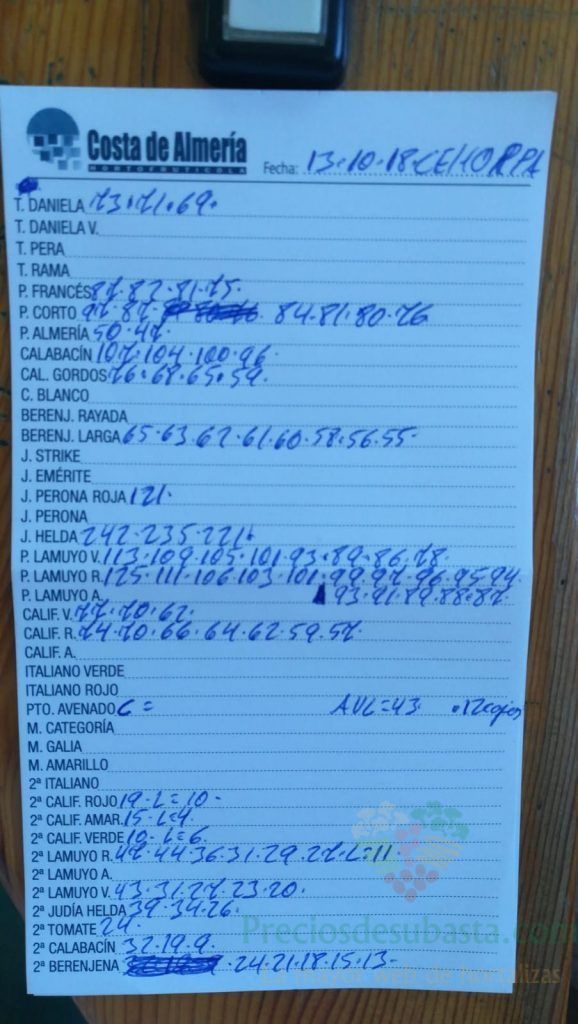 Costa de Almería
HORTOFRUTICOLA
Fecha: 13·10·18·CEHORPA
T. DANIELA 73·71·69·
T. DANIELA V.
T. PERA
T. RAMA
P. FRANCÉS 87·82·81·75·
P. CORTO 97·87· 84·81·80·76
P. ALMERÍA 50·47·
CALABACÍN 107·104·100·96·
CAL. GORDOS 76·68·65·59·
C. BLANCO
BERENJ. RAYADA
BERENJ. LARGA 65·63·62·61·60·58·56·55·
J. STRIKE
J. EMÉRITE
J. PERONA ROJA 121·
J. PERONA
J. HELDA 242·235·221·
P. LAMUYO V. 113·109·105·101·93·89·86·78·
P. LAMUYO R. 125·111·106·103·101·99·97·96·95·94
P. LAMUYO A. 93·91·89·88·87·
CALIF. V. 77·70·62·
CALIF. R. 74·70·66·64·62·59·57·
CALIF. A.
ITALIANO VERDE
ITALIANO ROJO
PTO. AVENADO C = AVL=43·
M. CATEGORÍA
M. GALIA
M. AMARILLO
2ª ITALIANO
2ª CALIF. ROJO 19·L=10·
2ª CALIF. AMAR. 15·L=4·
2ª CALIF. VERDE 10·L=6·
2ª LAMUYO R. 47·44·36·31·29·27·L=11
2ª LAMUYO A.
2ª LAMUYO V. 43·31·27·23·20·
2ª JUDÍA HELDA 39·34·26·
2ª TOMATE 24·
2ª CALABACÍN 32·19·9·
2ª BERENJENA ·24·21·18·15·13·
Preciosdesubasta.com